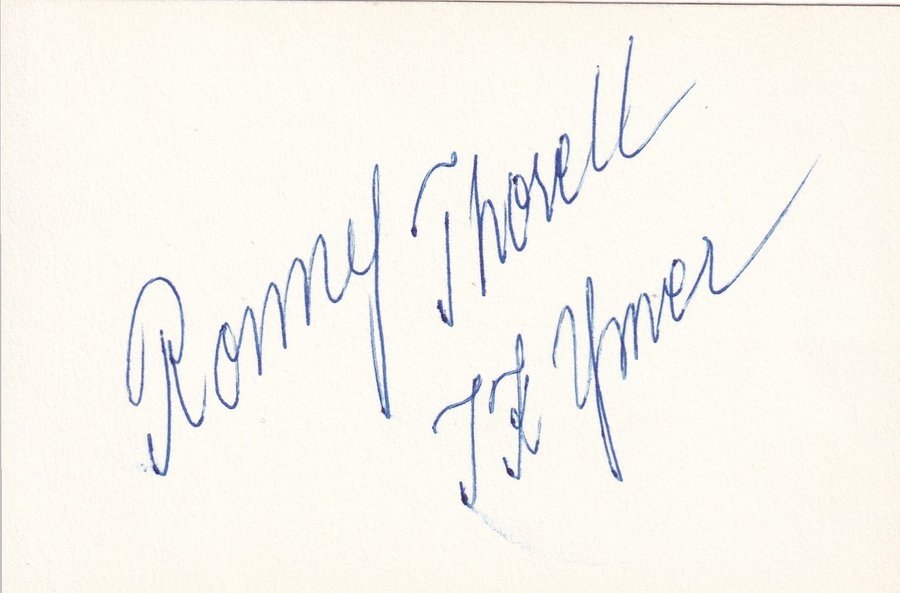 Ronney Thorell
IK Ymer